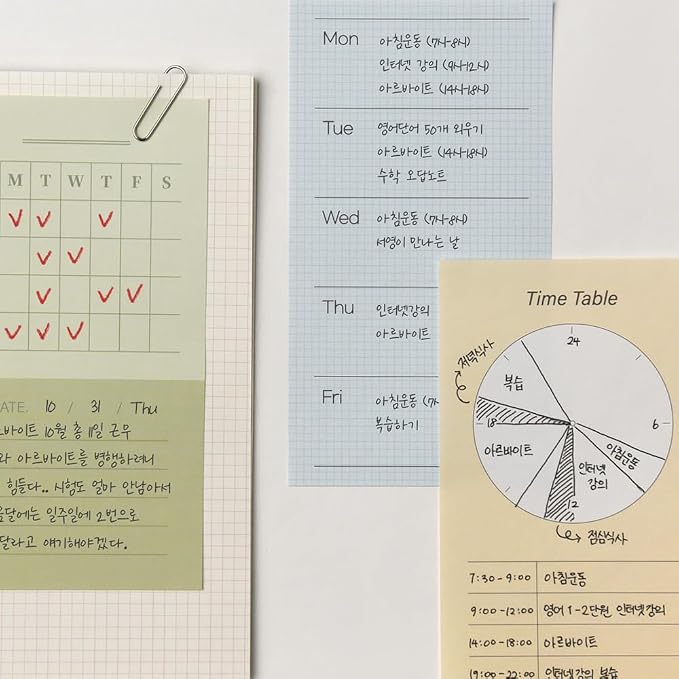 M T W T F S
DATE. 10 / 31 / Thu
바이트 10월 총 11일 근무
와 아르바이트를 병행하려니
힘들다.. 시험도 얼마 안남아서
음달에는 일주일에 2번으로
달라고 얘기해야겠다.
Mon
아침운동 (7시-8시)
인터넷 강의 (9시-12시)
아르바이트 (14시-18시)
Tue
영어단어 50개 외우기
아르바이트 (14시-18시)
수학 오답노트
Wed
아침운동 (7시-8시)
서영이 만나는 날
Thu
인터넷강의
아르바이트
Fri
아침운동 (7시-
복습하기
Time Table
24
저녁식사
복습
18
6
아르바이트
아침운동
인터넷
강의
12
점심식사
7:30-9:00 아침운동
9:00-12:00 영어 1-2단원 인터넷강의
14:00-18:00 아르바이트
19:00-22:00 인터넷강의 복습